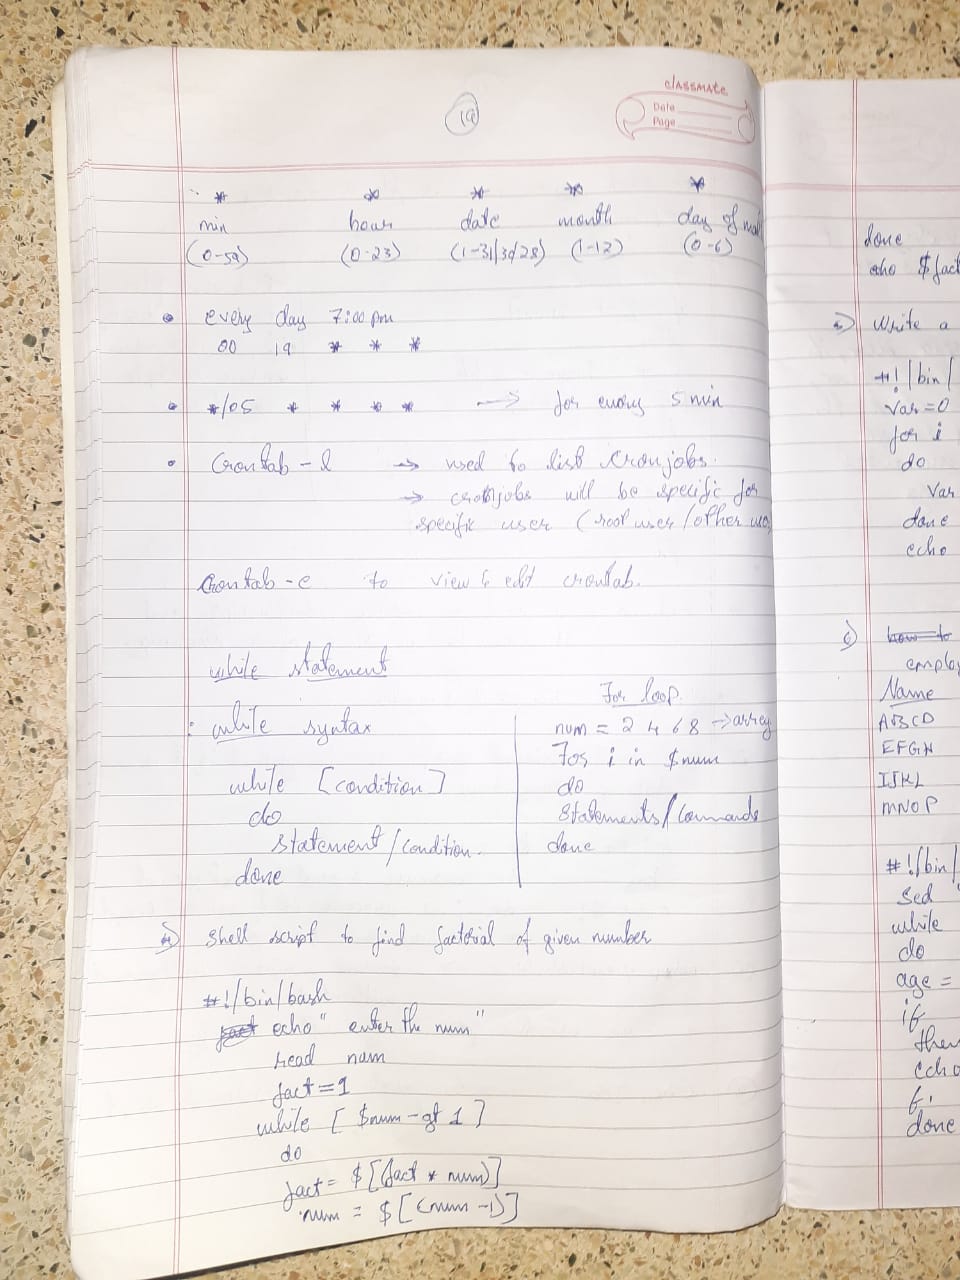 19
classmate
Date
Page
* * * * *
min hours date month day of
(0-59) (0-23) (1-31/30/28) (1-12) (0-6)
• every day 7:00 pm
00 19 * * *
• */05 * * * * → for every 5 min
• Crontab -l → used to list Cronjobs.
→ cronjobs will be specific for
specific user (root user/other
Crontab -e to view & edit crontab.
while statement
: while syntax
while [condition]
do
statement/condition.
done
For loop.
num = 2 4 6 8 → array
For i in $num
do
Statements/Commands
done
Shell script to find factorial of given number
#!/bin/bash
echo "enter the num"
read num
fact=1
while [ $num -gt 1 ]
do
fact = $[(fact * num)]
num = $[(num -1)]
done
echo $fact
Write a
#!/bin/
Var=0
for i
do
Var
done
echo
c) how to
Name
ABCD
EFGH
IJKL
MNOP
#!/bin/
Sed
while
do
age =
if
then
echo
fi
done